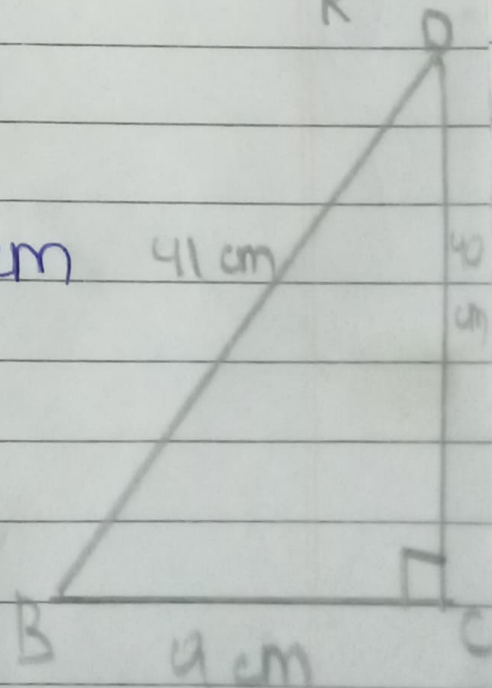 D
41 cm
40
cm
cm
B
9 cm
C